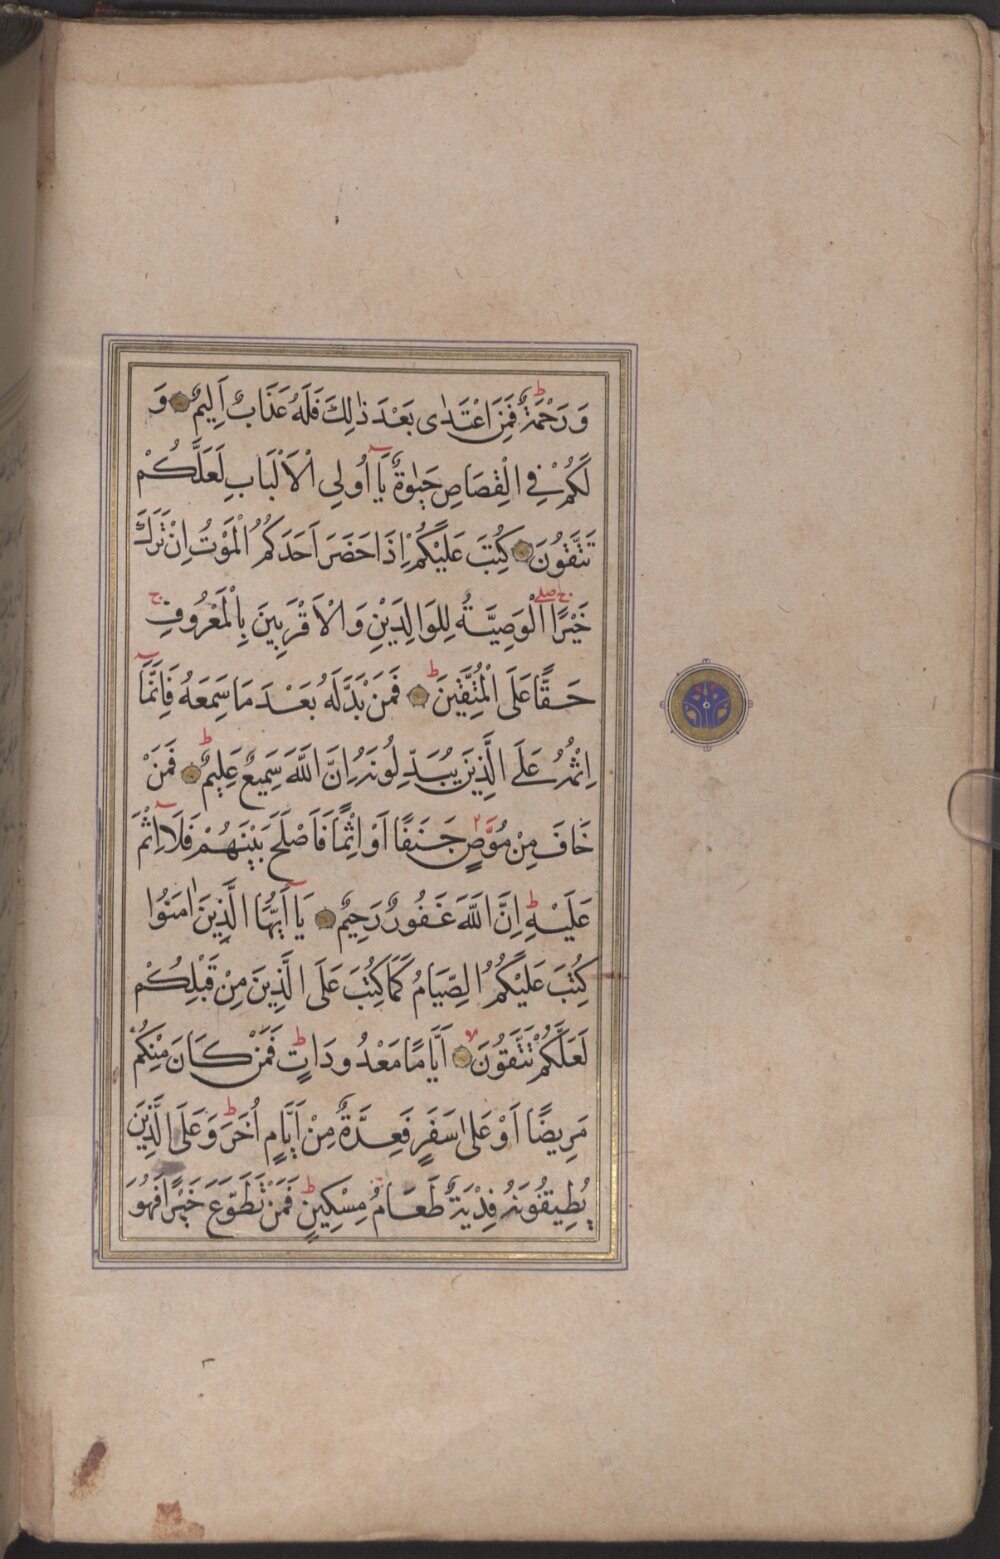 وَرَحْمَةٌ فَمَنِ اعْتَدٰى بَعْدَ ذٰلِكَ فَلَهُ عَذَابٌ اَلِيمٌ وَ
لَكُمْ فِي الْقِصَاصِ حَيٰوةٌ يَٓا اُولِي الْاَلْبَابِ لَعَلَّكُمْ
تَتَّقُونَ كُتِبَ عَلَيْكُمْ اِذَا حَضَرَ اَحَدَكُمُ الْمَوْتُ اِنْ تَرَكَ
خَيْرًا الْوَصِيَّةُ لِلْوَالِدَيْنِ وَالْاَقْرَبِينَ بِالْمَعْرُوفِ
حَقًّا عَلَى الْمُتَّقِينَ فَمَنْ بَدَّلَهُ بَعْدَ مَا سَمِعَهُ فَاِنَّمَٓا
اِثْمُهُ عَلَى الَّذِينَ يُبَدِّلُونَهُ اِنَّ اللّٰهَ سَمِيعٌ عَلِيمٌ فَمَنْ
خَافَ مِنْ مُوَصٍّ جَنَفًا اَوْ اِثْمًا فَاَصْلَحَ بَيْنَهُمْ فَلَٓا اِثْمَ
عَلَيْهِ اِنَّ اللّٰهَ غَفُورٌ رَحِيمٌ يَٓا اَيُّهَا الَّذِينَ اٰمَنُوا
كُتِبَ عَلَيْكُمُ الصِّيَامُ كَمَا كُتِبَ عَلَى الَّذِينَ مِنْ قَبْلِكُمْ
لَعَلَّكُمْ تَتَّقُونَ اَيَّامًا مَعْدُودَاتٍ فَمَنْ كَانَ مِنْكُمْ
مَرِيضًا اَوْ عَلٰى سَفَرٍ فَعِدَّةٌ مِنْ اَيَّامٍ اُخَرَ وَعَلَى الَّذِينَ
يُطِيقُونَهُ فِدْيَةٌ طَعَامُ مِسْكِينٍ فَمَنْ تَطَوَّعَ خَيْرًا فَهُوَ